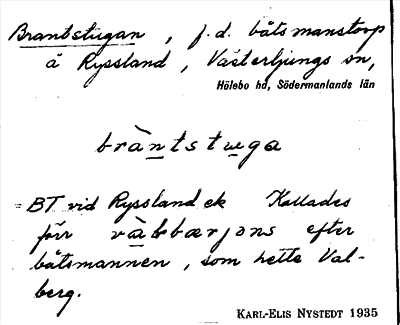 Brantstugan, f.d. båtsmanstorp
å Ryssland, Västerljungs sn,
Hölebo hd, Södermanlands län
bràntstuga
= BT vid Ryssland ek Kallades
förr vàbbærjens efter
båtsmannen, som hette Val-
berg.
KARL-ELIS NYSTEDT 1935